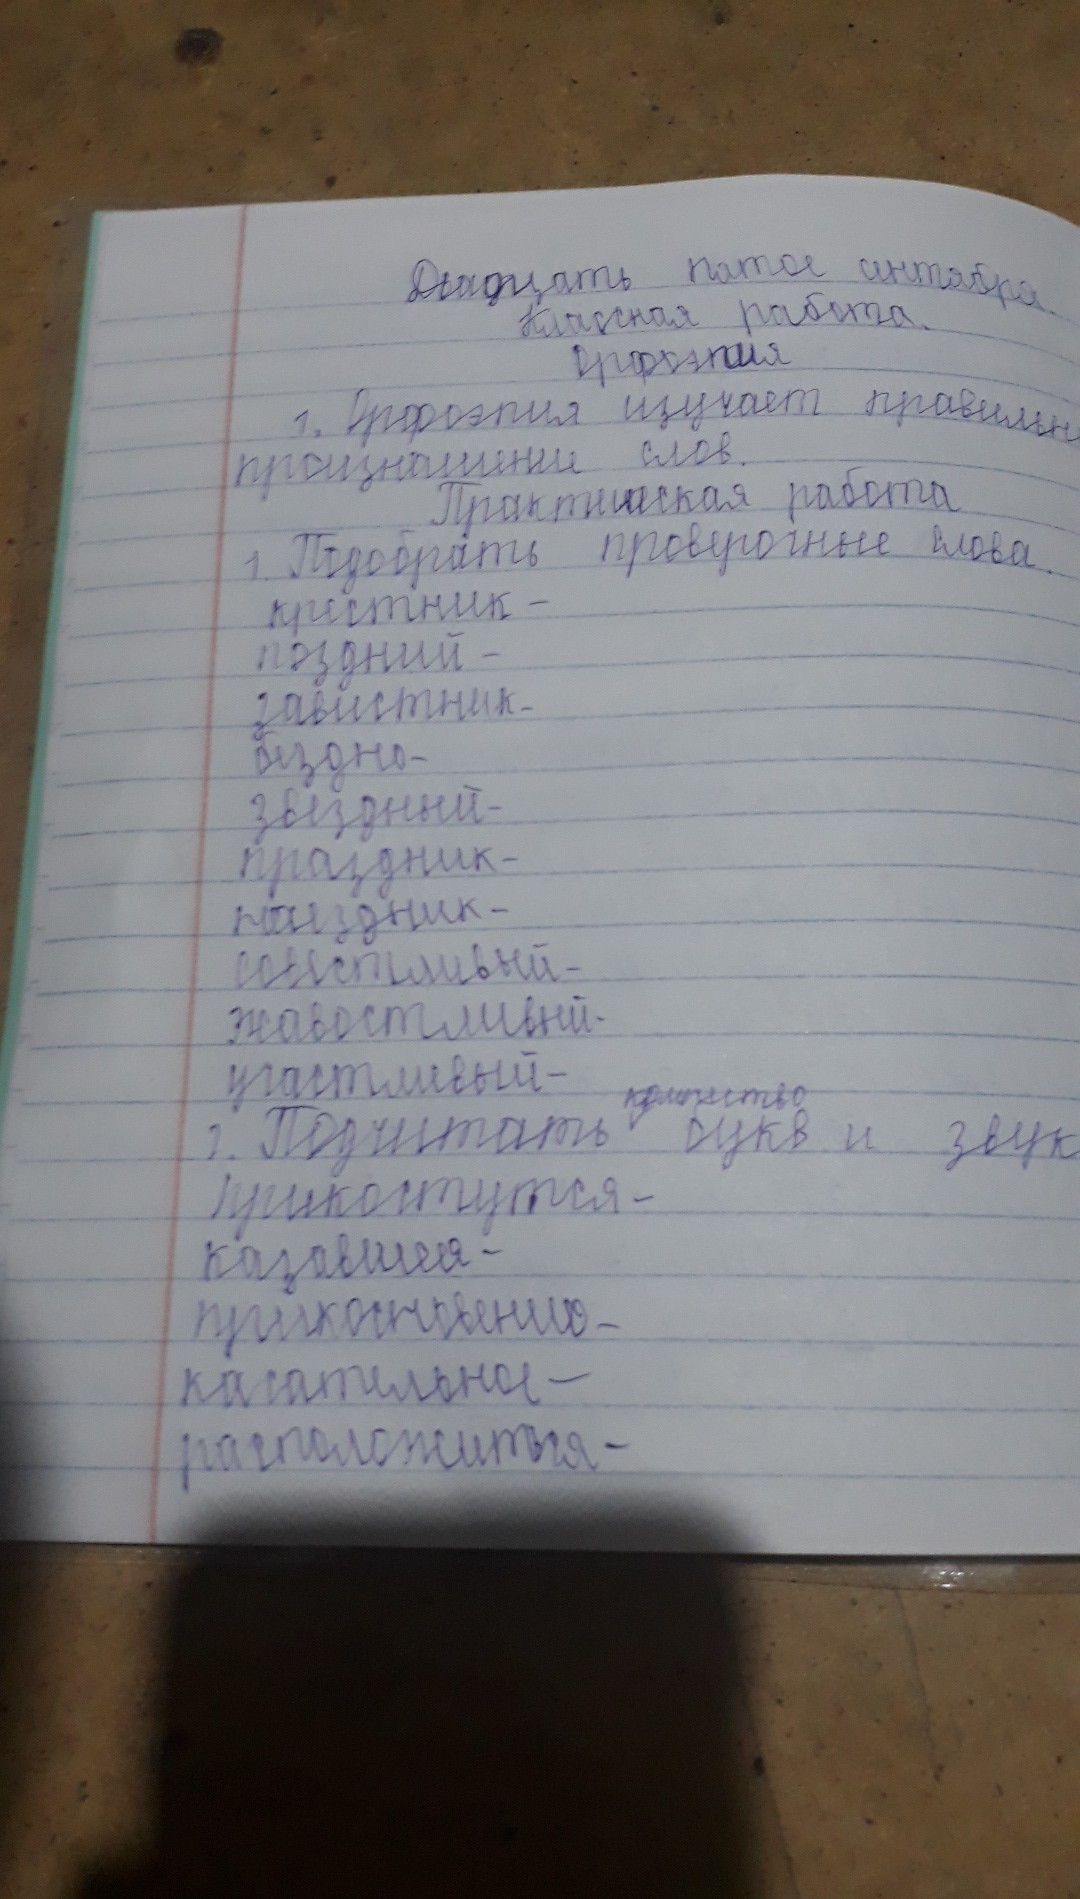 Двадцать пятое сентября.
Классная работа.
Орфоэпия
1. Орфоэпия изучает правильн
произношение слов.
Практическая работа
1. Подобрать проверочные слова.
крестник -
поздний -
завистник -
бездно -
звездный -
праздник -
наездник -
совестливый -
жавостливый -
участливый -
количество
2. Подчитать букв и звук
Прикоснутся -
казавшееся -
прикосновению -
касательное -
расположиться -